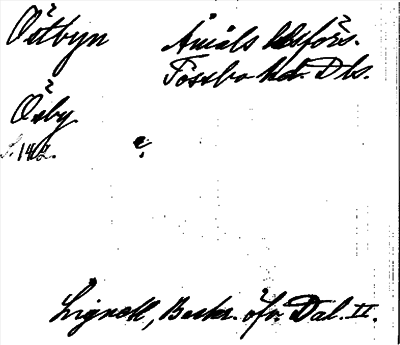 Östbyn Åmåls ldsförs.
Tössbo hd. Dls.
Ösby
s. 142. e.
Lignell, Beskr. öfv. Dal. II.